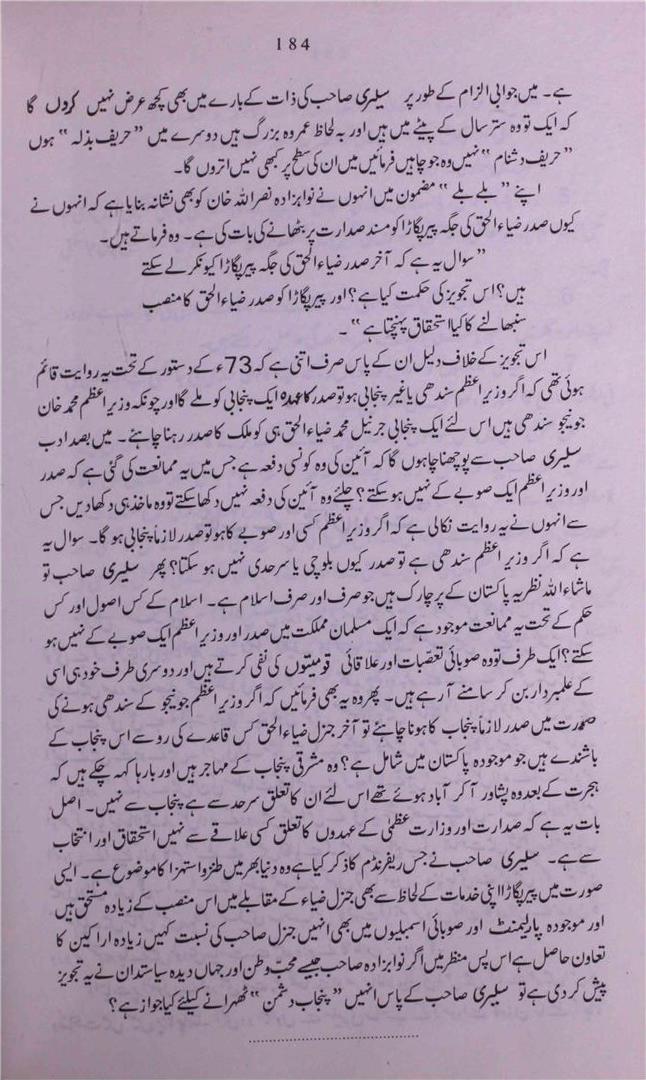 184
ہے۔ میں جوابی الزام کے طور پر سیلری صاحب کی ذات کے بارے میں بھی کچھ عرض نہیں کروں گا
کہ ایک تو وہ ستر سال کے پیٹے میں ہیں اور بہ لحاظ عمر وہ بزرگ ہیں دوسرے میں ”حریف بذلہ“ ہوں
”حریف دشنام“ نہیں وہ جو چاہیں فرمائیں میں ان کی سطح پر کبھی نہیں اتروں گا۔
اپنے ”بلے بلے“ مضمون میں انہوں نے نوابزادہ نصر اللہ خان کو بھی نشانہ بنایا ہے کہ انہوں نے
کیوں صدر ضیاء الحق کی جگہ پیر پگاڑا کو مسند صدارت پر بٹھانے کی بات کی ہے۔ وہ فرماتے ہیں۔
”سوال یہ ہے کہ آخر صدر ضیاء الحق کی جگہ پیر پگاڑا کیونکر لے سکتے
ہیں؟ اس تجویز کی حکمت کیا ہے؟ اور پیر پگاڑا کو صدر ضیاء الحق کا منصب
سنبھالنے کا کیا استحقاق پہنچتا ہے“۔
اس تجویز کے خلاف دلیل ان کے پاس صرف اتنی ہے کہ 73ء کے دستور کے تحت یہ روایت قائم
ہوئی تھی کہ اگر وزیر اعظم سندھی یا غیر پنجابی ہو تو صدر کا عہدہ ایک پنجابی کو ملے گا اور چونکہ وزیر اعظم محمد خان
جونیجو سندھی ہیں اس لئے ایک پنجابی جرنیل محمد ضیاء الحق ہی کو ملک کا صدر رہنا چاہئے۔ میں بصد ادب
سیلری صاحب سے پوچھنا چاہوں گا کہ آئین کی وہ کونسی دفعہ ہے جس میں یہ ممانعت کی گئی ہے کہ صدر
اور وزیر اعظم ایک صوبے کے نہیں ہو سکتے؟ چلئے وہ آئین کی دفعہ نہیں دکھا سکتے تو وہ ماخذ ہی دکھا دیں جس
سے انہوں نے یہ روایت نکالی ہے کہ اگر وزیر اعظم کسی اور صوبے کا ہو تو صدر لازماً پنجابی ہو گا۔ سوال یہ
ہے کہ اگر وزیر اعظم سندھی ہے تو صدر کیوں بلوچی یا سرحدی نہیں ہو سکتا؟ پھر سیلری صاحب تو
ماشاء اللہ نظریہ پاکستان کے پرچارک ہیں جو صرف اور صرف اسلام ہے۔ اسلام کے کس اصول اور کس
حکم کے تحت یہ ممانعت موجود ہے کہ ایک مسلمان مملکت میں صدر اور وزیر اعظم ایک صوبے کے نہیں ہو
سکتے؟ ایک طرف تو وہ صوبائی تعصبات اور علاقائی قومیتوں کی نفی کرتے ہیں اور دوسری طرف خود ہی اسی
کے علمبردار بن کر سامنے آ رہے ہیں۔ پھر وہ یہ بھی فرمائیں کہ اگر وزیر اعظم جونیجو کے سندھی ہونے کی
صورت میں صدر لازماً پنجاب کا ہونا چاہئے تو آخر جنرل ضیاء الحق کس قاعدے کی رو سے اس پنجاب کے
باشندے ہیں جو موجودہ پاکستان میں شامل ہے؟ وہ مشرقی پنجاب کے مہاجر ہیں اور بارہا کہہ چکے ہیں کہ
ہجرت کے بعد وہ پشاور آ کر آباد ہوئے تھے اس لئے ان کا تعلق سرحد سے ہے پنجاب سے نہیں۔ اصل
بات یہ ہے کہ صدارت اور وزارت عظمیٰ کے عہدوں کا تعلق کسی علاقے سے نہیں استحقاق اور انتخاب
سے ہے۔ سیلری صاحب نے جس ریفرنڈم کا ذکر کیا ہے وہ دنیا بھر میں طنز و استہزا کا موضوع ہے۔ ایسی
صورت میں پیر پگاڑا اپنی خدمات کے لحاظ سے بھی جنرل ضیاء کے مقابلے میں اس منصب کے زیادہ مستحق ہیں
اور موجودہ پارلیمنٹ اور صوبائی اسمبلیوں میں بھی انہیں جنرل صاحب کی نسبت کہیں زیادہ اراکین کا
تعاون حاصل ہے اس پس منظر میں اگر نوابزادہ صاحب جیسے محب وطن اور جہاں دیدہ سیاستدان نے یہ تجویز
پیش کر دی ہے تو سیلری صاحب کے پاس انہیں ”پنجاب دشمن“ ٹھہرانے کیلئے کیا جواز ہے؟